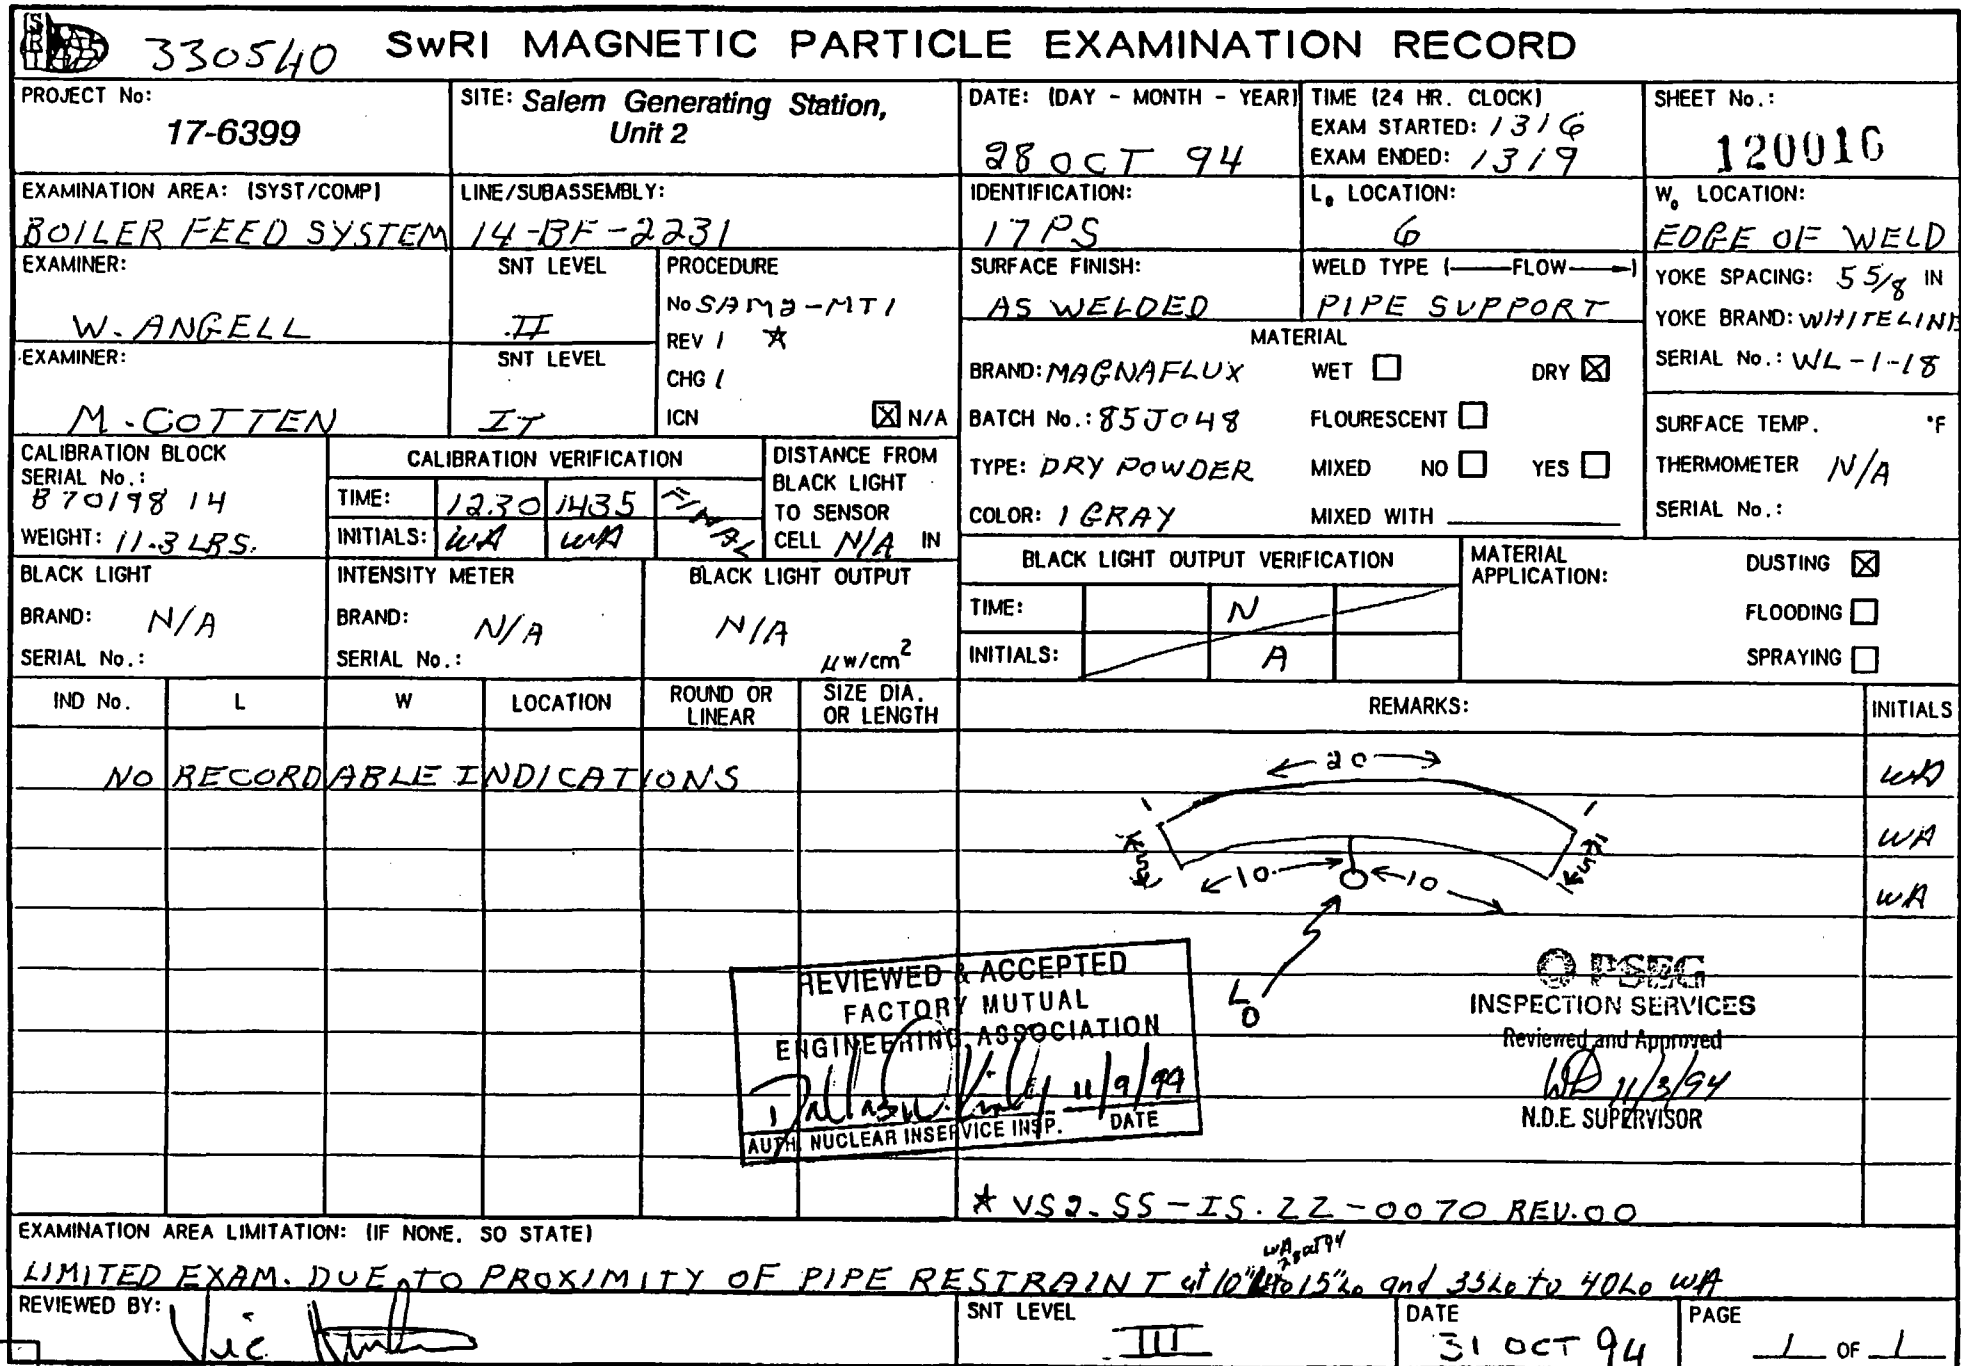 330540 SwRI MAGNETIC PARTICLE EXAMINATION RECORD
PROJECT No: 17-6399
SITE: Salem Generating Station, Unit 2
DATE: (DAY - MONTH - YEAR) 28 OCT 94
TIME (24 HR. CLOCK)
EXAM STARTED: 1316
EXAM ENDED: 1319
SHEET No.: 120016
EXAMINATION AREA: (SYST/COMP) BOILER FEED SYSTEM
LINE/SUBASSEMBLY: 14-BF-2231
IDENTIFICATION: 17PS
L₀ LOCATION: 6
W₀ LOCATION: EDGE OF WELD
EXAMINER: W. ANGELL
SNT LEVEL II
PROCEDURE
No SAM2-MT1
REV 1 ☆
CHG 1
ICN ☒ N/A
EXAMINER: M. COTTEN
SNT LEVEL II
SURFACE FINISH: AS WELDED
WELD TYPE (——FLOW——) PIPE SUPPORT
YOKE SPACING: 5 5/8 IN
YOKE BRAND: WHITELINE
SERIAL No.: WL-1-18
MATERIAL
BRAND: MAGNAFLUX WET ☐ DRY ☒
BATCH No.: 85J048 FLOURESCENT ☐
TYPE: DRY POWDER MIXED NO ☐ YES ☐
COLOR: 1 GRAY MIXED WITH
SURFACE TEMP. °F
THERMOMETER N/A
SERIAL No.:
CALIBRATION BLOCK
SERIAL No.:
B70198 14
WEIGHT: 11.3 LBS.
CALIBRATION VERIFICATION
TIME: 1230 1435 FINAL
INITIALS: WA WA
DISTANCE FROM
BLACK LIGHT
TO SENSOR
CELL N/A IN
BLACK LIGHT
BRAND: N/A
SERIAL No.:
INTENSITY METER
BRAND: N/A
SERIAL No.:
BLACK LIGHT OUTPUT
N/A
μw/cm²
BLACK LIGHT OUTPUT VERIFICATION
TIME: N
INITIALS: A
MATERIAL APPLICATION:
DUSTING ☒
FLOODING ☐
SPRAYING ☐
IND No. L W LOCATION ROUND OR LINEAR SIZE DIA. OR LENGTH REMARKS: INITIALS
NO RECORDABLE INDICATIONS
20
5
5
10
10
L
O
WA
WA
WA
REVIEWED & ACCEPTED
FACTORY MUTUAL
ENGINEERING ASSOCIATION
11/9/94
AUTH. NUCLEAR INSERVICE INSP. DATE
PSEG
INSPECTION SERVICES
Reviewed and Approved
11/3/94
N.D.E. SUPERVISOR
☆ VS2.SS-IS.ZZ-0070 REV.00
EXAMINATION AREA LIMITATION: (IF NONE, SO STATE)
WA 28 oct 94
LIMITED EXAM. DUE TO PROXIMITY OF PIPE RESTRAINT at 10" to 15" Lo and 35Lo to 40Lo WA
REVIEWED BY: Vic
SNT LEVEL III
DATE 31 OCT 94
PAGE 1 OF 1